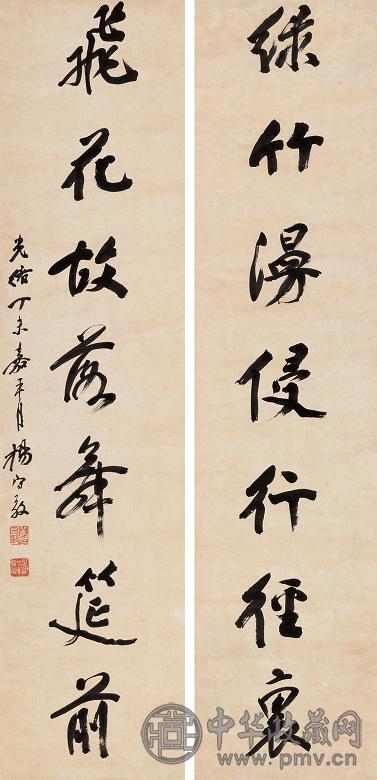 綠竹漫侵行徑裏
飛花故落舞筵前
光緒丁未嘉平月楊守敬
中华收藏网
www.pmv.cn